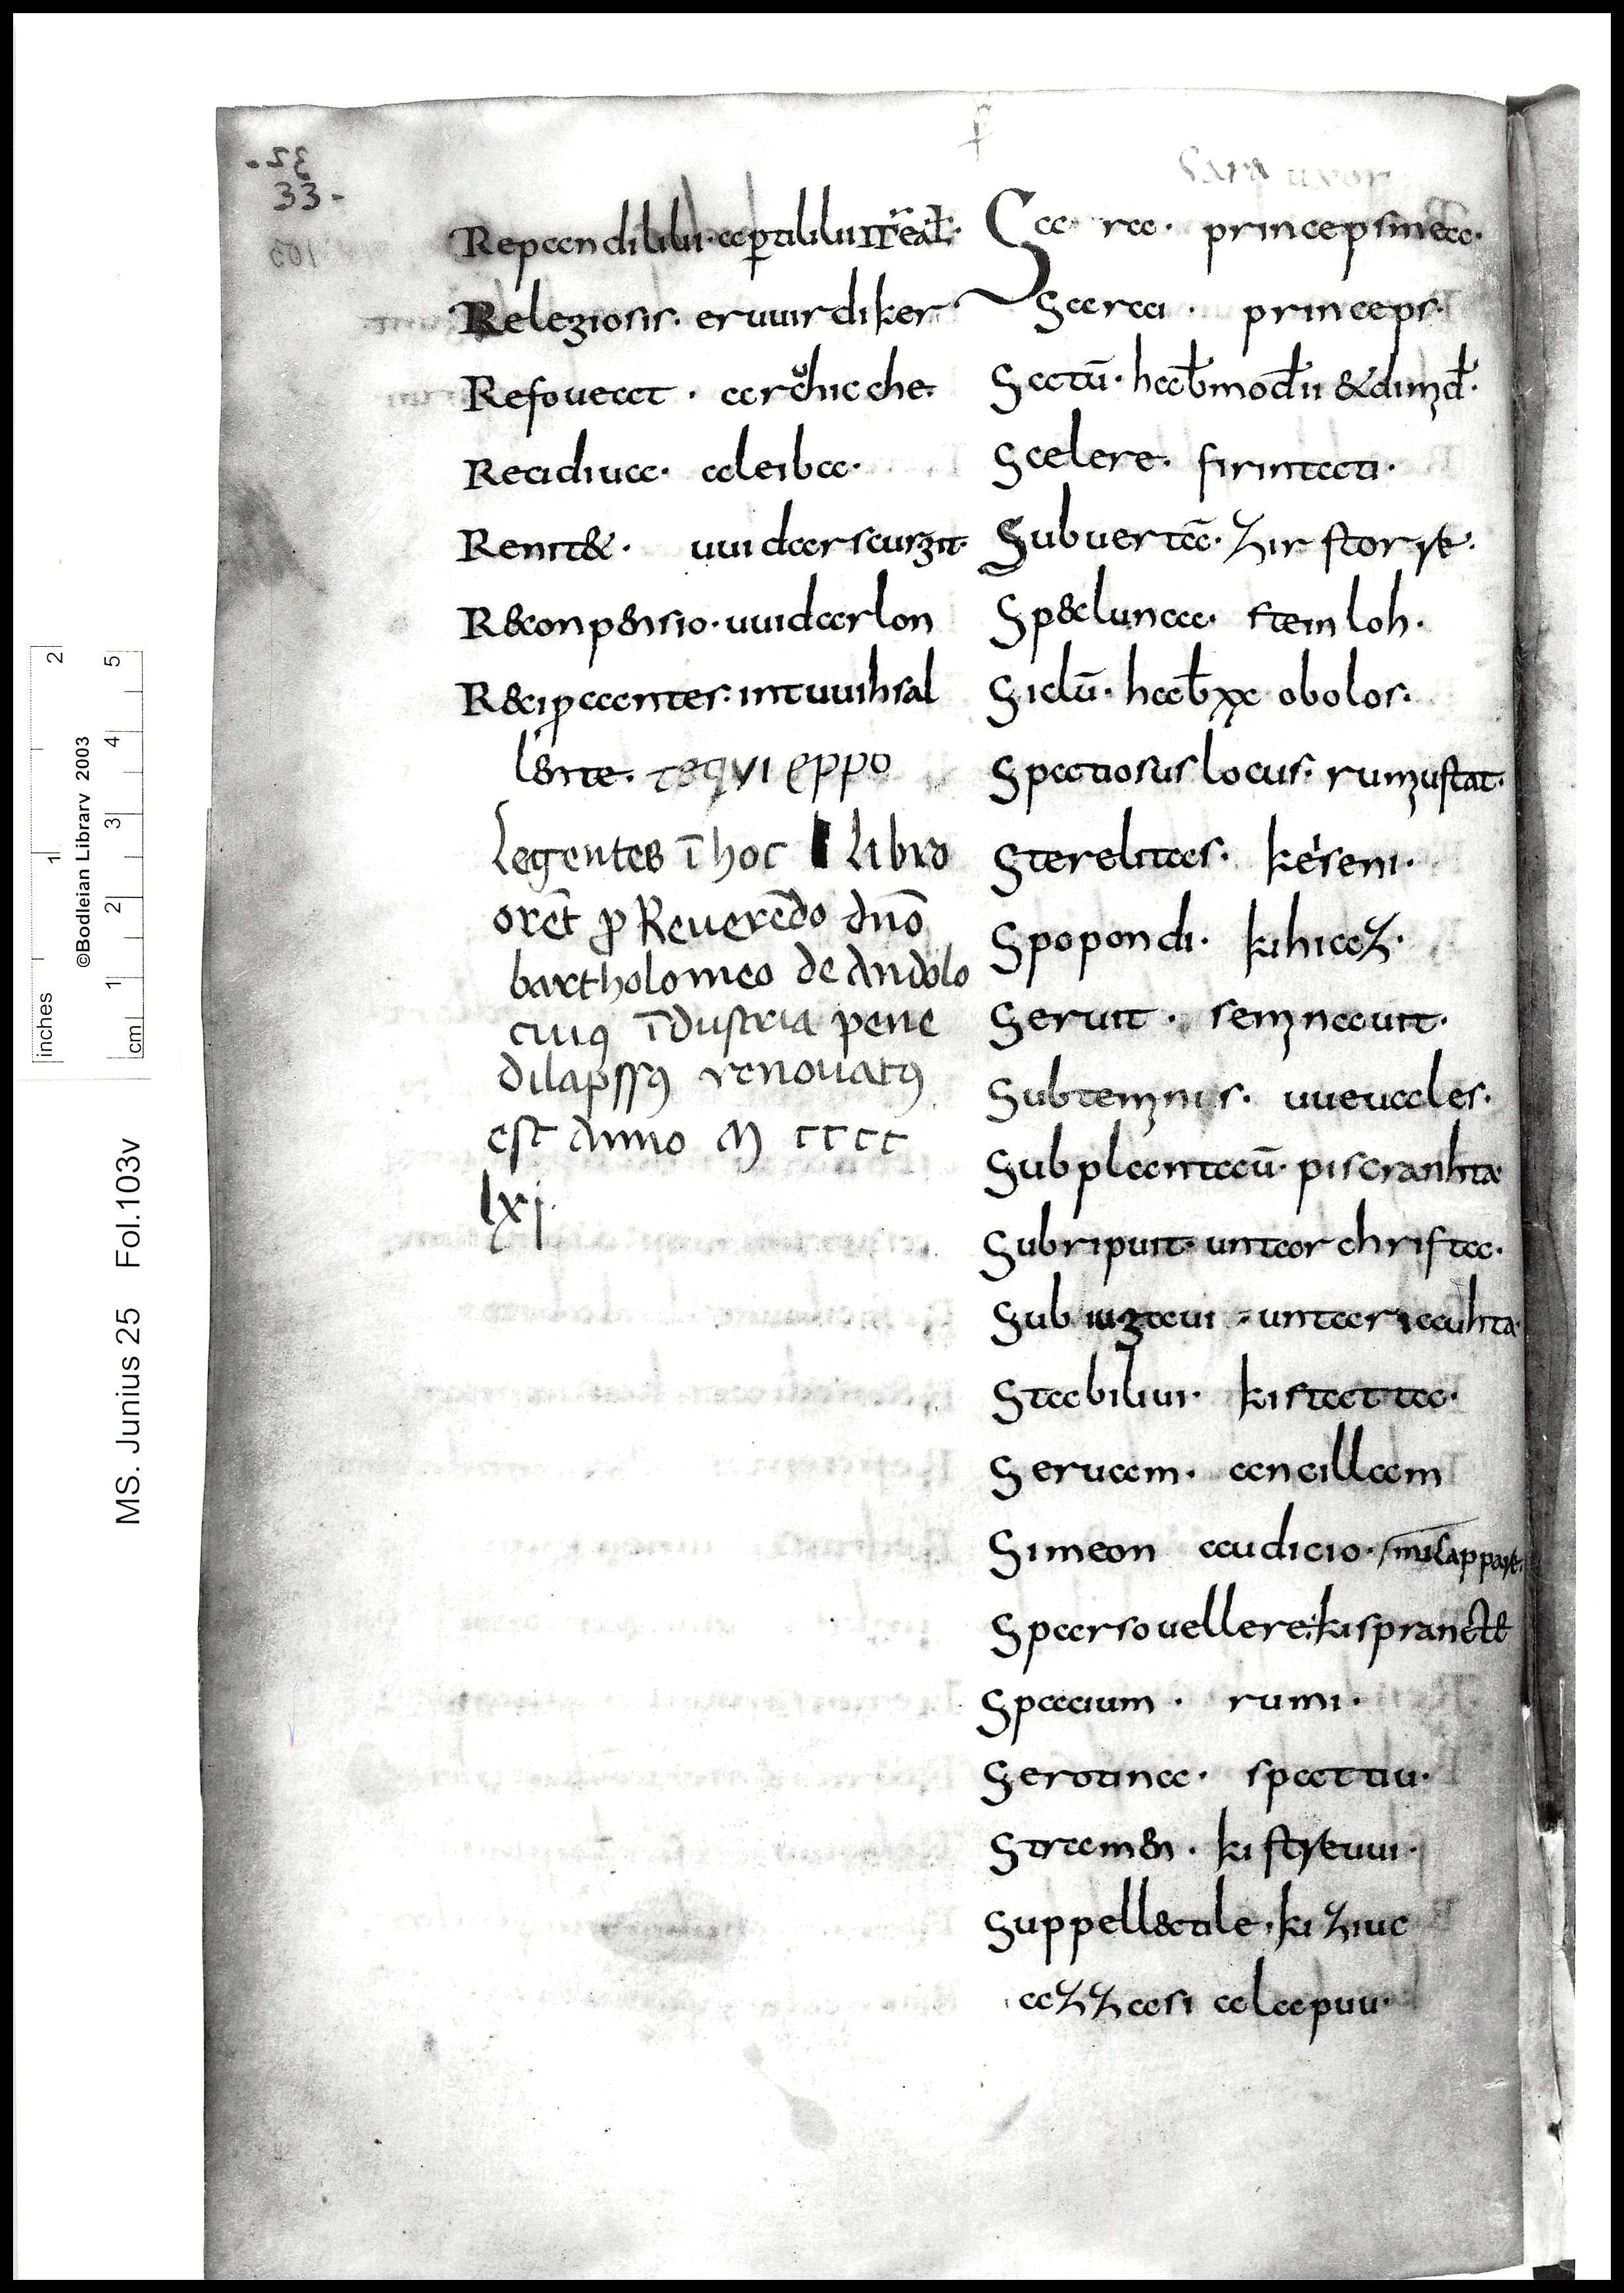 32.
33-
Sara uxor
Repandilibu· aptibilu
Religiosis· eruuirdiker
Refoueat · archicche·
Recidiua· aleiba·
Renit&· uuidarscurgit·
R&conp&nsio· uuidarlon
R&ciprantes· intuuihsal
l&nte· tequi eppo
Legentes ī hoc libro
orēt ꝓ Reuerēdo dnō
bartholomeo de Andolo
cuiꝯ īdustria pene
dilapssꝯ renouatꝯ
est Anno M cccc
lxj.
Sa ra· princeps mea·
Sarai· princeps·
Satū· hab& modii &dimd·
Scelere· firintati·
Subuertā· zir storre·
Sp&lunca· steinloh·
Siclū· hab& xx obolos·
Spatiosus locus· rumgustat·
Sterelitas· keseni·
Spopondi· kihiaz·
Seruit· semnauit·
Subtegnis· uueuales·
Subplantatū· piscranhta·
Subripuit· untar christa·
Subiugaui· untar iauhta·
Stabiliui· kistatta·
Seruam· ancillam
Simeon audicio·
Sparso uellere· kispranct&
Spacium· rumi·
Serotina· spattiu·
Stramen· ki streuui·
Suppell&ctile· ki ziuc
azzasi alapuu·
inches
1
2
cm
1
2
3
4
5
©Bodleian Library 2003
MS. Junius 25 Fol.103v